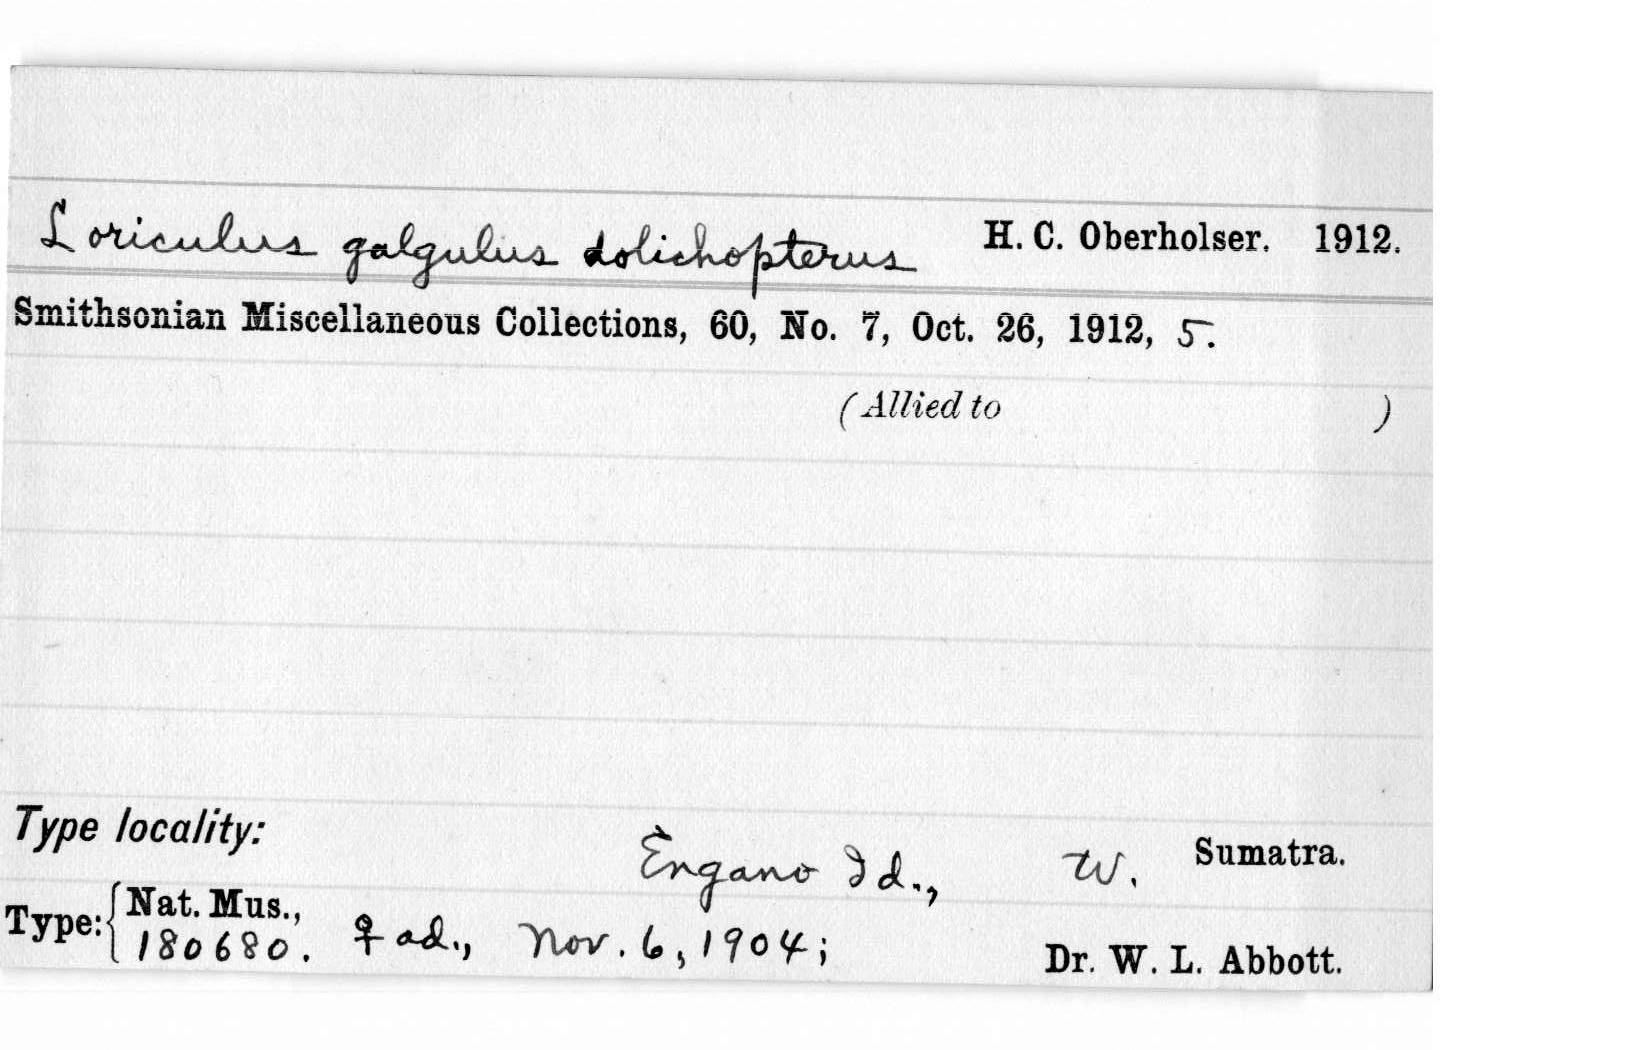 Loriculus galgulus dolichopterus H. C. Oberholser. 1912.
Smithsonian Miscellaneous Collections, 60, No. 7, Oct. 26, 1912, 5.
(Allied to )
Type locality:
Engano Id., W. Sumatra.
Type: { Nat. Mus., 180680. ♀ ad., Nov. 6, 1904; Dr. W. L. Abbott.